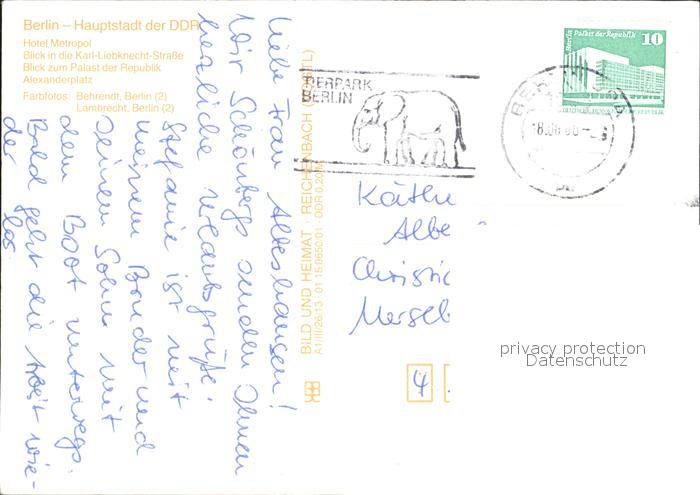 Berlin – Hauptstadt der DDR
Hotel Metropol
Blick in die Karl-Liebknecht-Straße
Blick zum Palast der Republik
Alexanderplatz
Farbfotos: Behrendt, Berlin (2)
Lambrecht, Berlin (2)
Liebe Frau Alteshausen!
Wir Schönbergs senden Ihnen
herzliche Urlaubsgrüße.
Stefanie ist mit
meinem Bruder und
seinem Sohn mit
dem Boot unterwegs.
Bald geht die Arbeit wie-
der los
BILD UND HEIMAT REICHENBACH (VOGTL)
A1/III/26/13 01 15 0650/01 DDR 0,20 M
TIERPARK
BERLIN
Berlin Palast der Republik 10
18.
Käthe
Albe
Christi
Merseb
4
privacy protection
Datenschutz